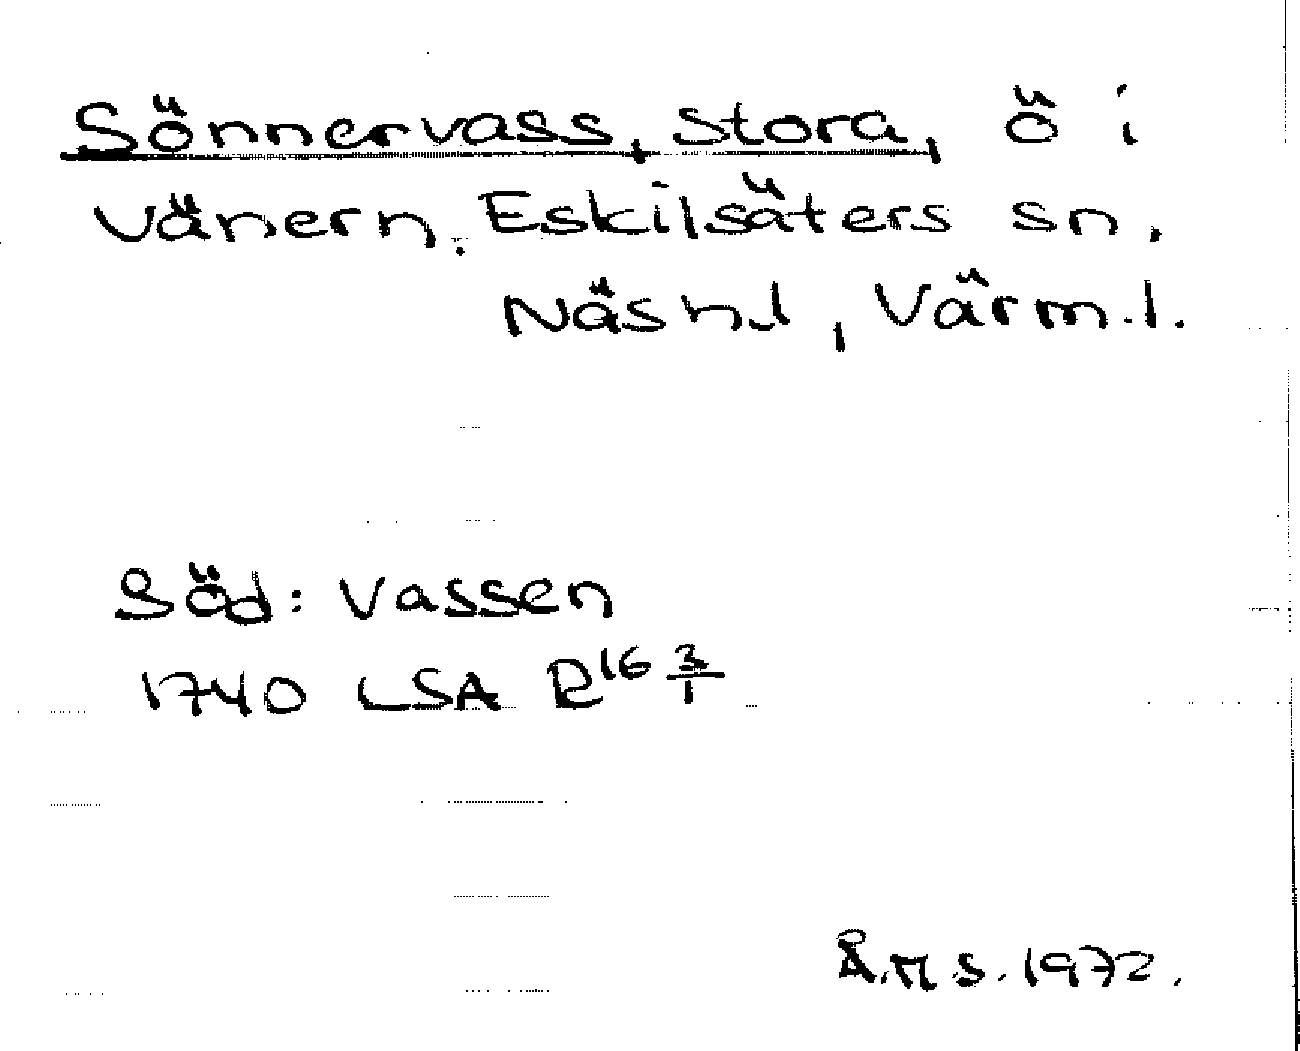 Sönnervass, stora, ö i
Vänern. Eskilsäters sn.
Näs h.d, Värm.l.
Söd: Vassen
1740 LSA R16 3/1
Å.M S. 1972.